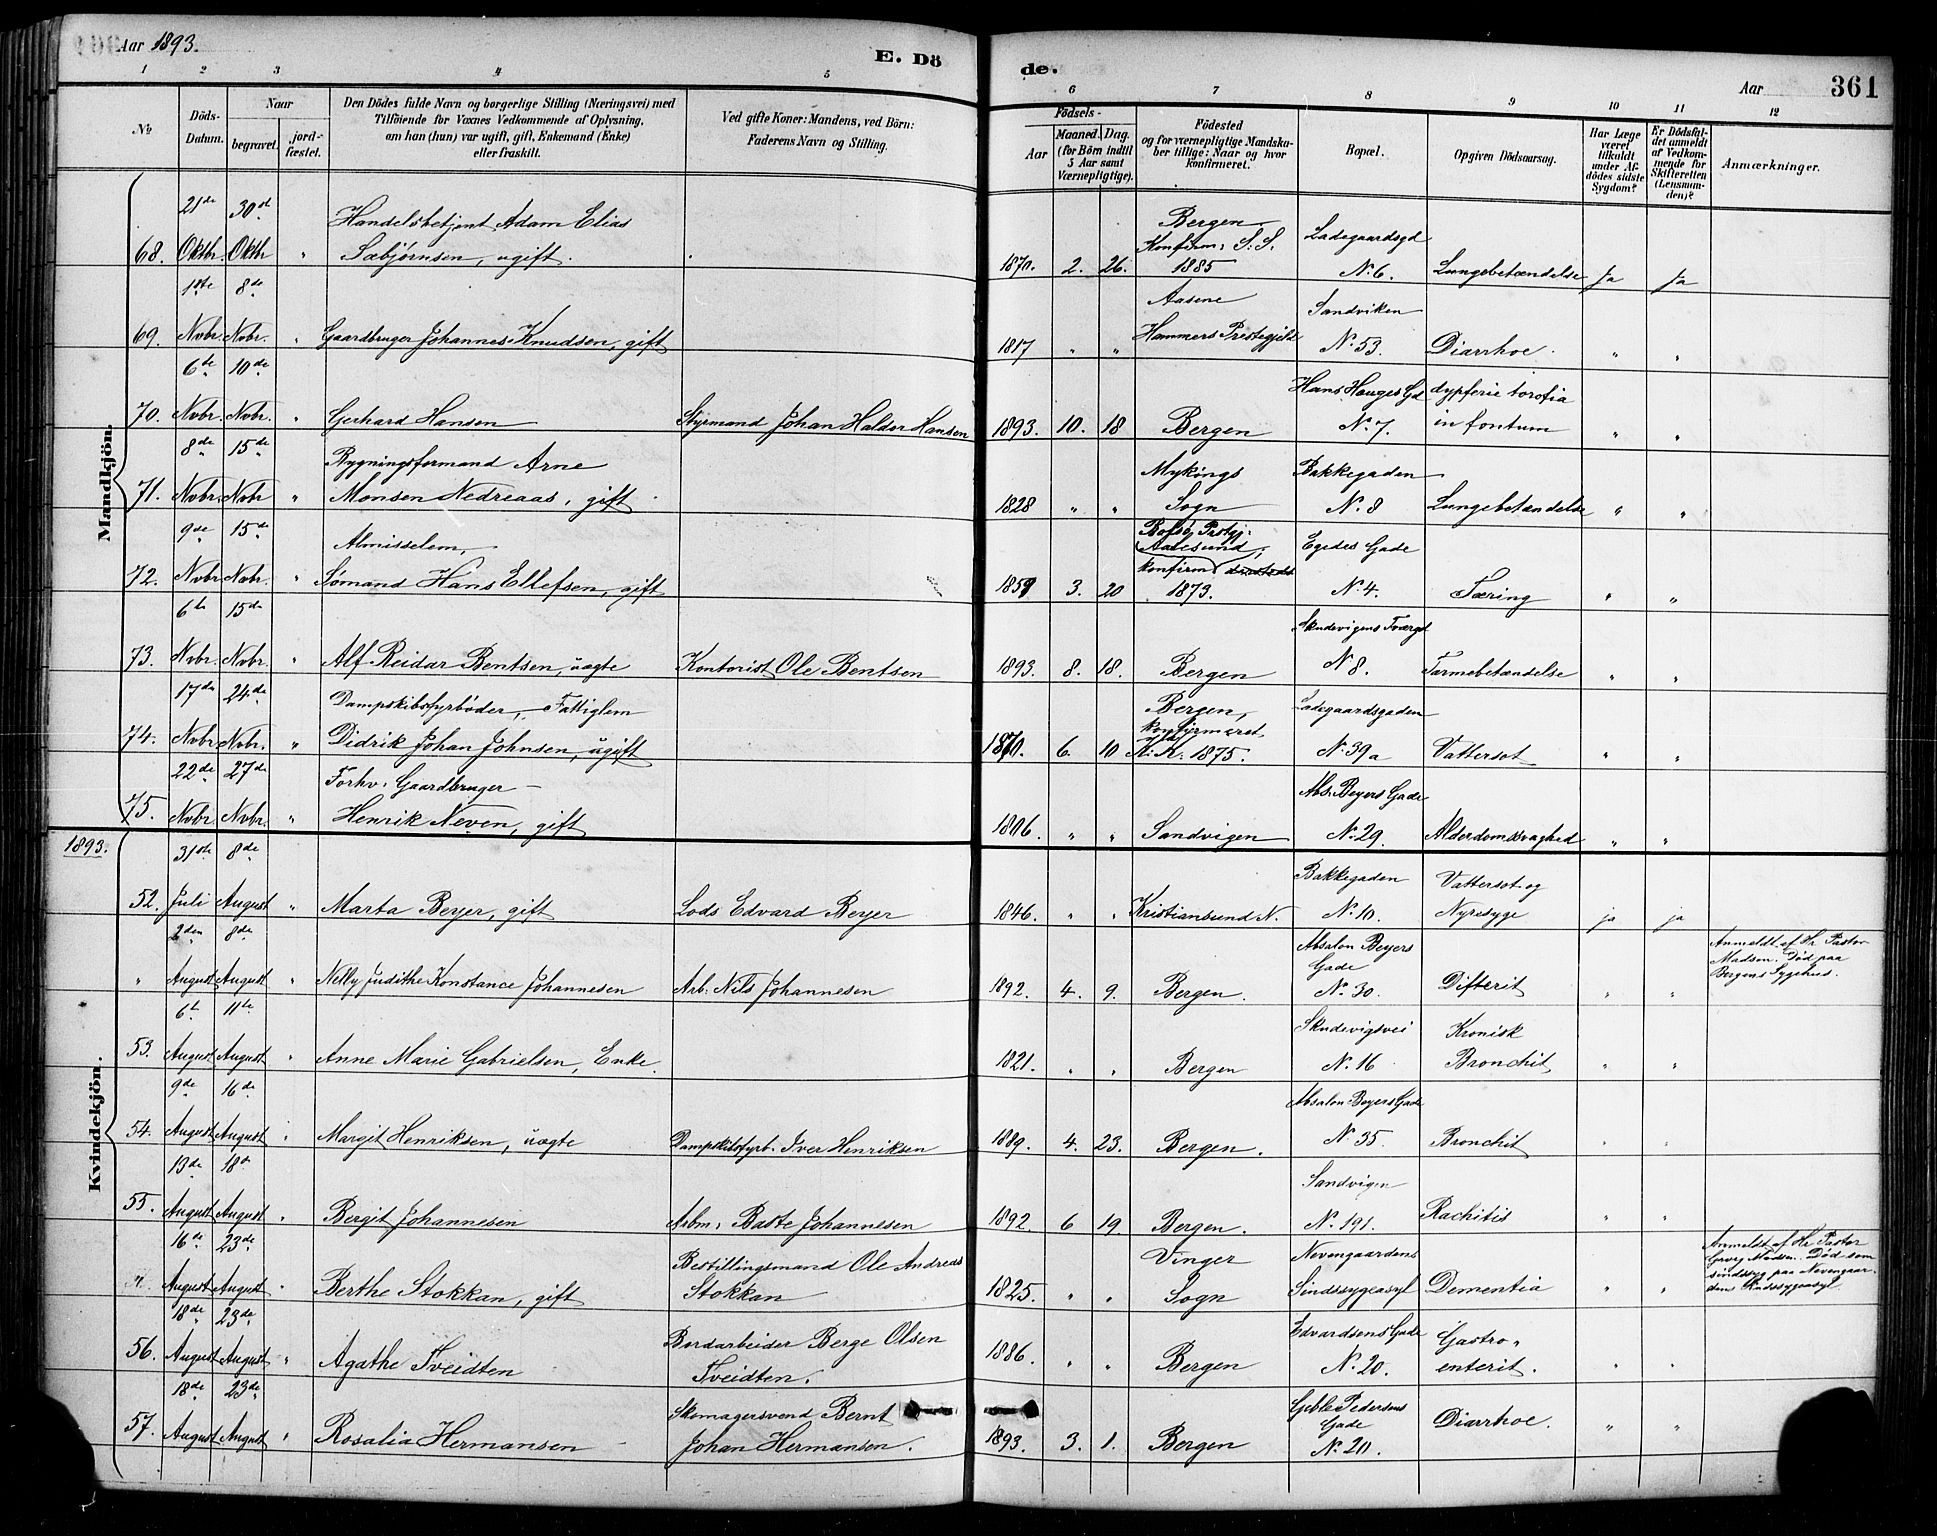 Aar 1893.
E. Dö
de.
Aar
361
1 2 3 4 5
6 7 8 9 10 11 12
No
Döds-
Datum.
Naar
begravet.
jord-
fæstet.
Den Dödes fulde Navn og borgerlige Stilling (Næringsvei) med
Tilföiende for Voxnes Vedkommende af Oplysning,
om han (hun) var ugift, gift, Enkemand (Enke)
eller fraskilt.
Ved gifte Koner: Mandens, ved Börn:
Faderens Navn og Stilling.
Födsels-
Aar
Maaned. Dag.
(for Börn indtil
5 Aar samt
Værnepligtige).
Födested
og for værnepligtige Mandska-
ber tillige: Naar og hvor
konfirmeret.
Bopæl.
Opgiven Dödsaarsag.
Har Læge
været
tilkaldt
under Af-
dödes sidste
Sygdom?
Er Dödsfal-
det anmeldt
af Vedkom-
mende for
Skifteretten
(Lensman-
den)?
Anmærkninger.
Mandkjön.
21de 30te Handelsbetjent Adam Elias Bergen Ladegaardsgd
68. Oktbr. Oktbr " Sæbjørnsen, ugift. Konfirm: S. S.
1870. 2. 26. 1885 No 6. Lungebetændelse Ja Ja
1ste 8de Aasene Sandviken
69. Nvbr. Nvbr. " Gaardbruger Johannes Knudsen, gift 1817 " " Hammers Prestegjeld No 53. Diarrhoe. " "
6te 10de Hans Hauges Gd
70. Nvbr. Nvbr. " Gerhard Hansen Styrmand Johan Halder Hansen 1893. 10. 18 Bergen No 7. " "
8de 15de Bygningsformand Arne Bakkegaden
71. Nvbr. Nvbr " Monsen Nedreaas, gift 1828 " " Sogn No 8 Lungebetændelse " "
9de 15de Almisselem, Aalesund, Egedes Gade
72. Nvbr Nvbr. " Sømand Hans Ellefsen, gift konfirm
1859 3. 20 1873. No 4. Tæring " "
6te 15de Skudevigens Tværgd
73. Nvbr. Nvbr. " Alf Reidar Bentsen, uægte Kontorist Ole Bentsen 1893. 8. 18. Bergen No 8. Tarmebetændelse " "
17de 24de Dampskibsfyrbøder, Fattiglem Bergen, Ladegaardsgaden
konfirmeret
74. Nvbr Nvbr. " Didrik Johan Johnsen, ugift 1870. 6. 10 N. K. 1875. No 39a Vattersot " "
22de 27de Forhv: Gaardbruger Abs. Beyers Gade
75. Nvbr. Nvbr. " Henrik Neven, gift 1806. " " Sandvigen No 29. Alderdomssvaghed " "
1893.
Kvindekjön.
31te 8de Bakkegaden Vattersot og
52. Juli August " Marta Beyer, gift Lods Edvard Beyer 1846. " " Kristiansund N. No 10. Nyresyge ja ja
2den 8de Absalon Beyers Gade
" August August " Nelly Judithe Konstance Johannesen Arb. Nils Johannesen 1892. 4. 9. Bergen. No 30. Difterit " " Anmeldt af Hr Pastor
Madsen. Død paa
Bergens Sygehus.
6te 11te Skudevigsvei Kronisk
53. August August " Anne Marie Gabrielsen, Enke. 1821. " " Bergen No 16 Bronchit " "
9de 16de Absalon Beyers Gade
54. August August " Margit Henriksen, uægte Dampskibsfyrb. Iver Henriksen 1889. 4. 23. Bergen. No 35. Bronchit " "
13de 18de Sandvigen
55. August August " Bergit Johannesen Arbm: Baste Johannesen 1892 6 19. Bergen. No 191. Rachitis " "
16de 23de Bestillingsmand Ole Andreas Vinger Nevengaardens
" August August " Berthe Stokkan, gift Stokkan 1825. " " Sogn Sindssygeasyl Dementia " " Anmeldt af Hr Pastor
Madsen. Død som
sindssyg paa Nevengaar-
dens Sindssygeasyl
18de 23de Bordarbeider Berge Olsen Edvardsens Gade Gastro-
56. August August " Agathe Tveidten Tveidten. 1886. " " Bergen No 20. enterit. " "
18de 23de Skomagersvend Bernt Geble Pedersens Gade
57. August August " Rosalia Hermansen Johan Hermansen. 1893. 3. 1. Bergen No 20. Diarrhoe. " "